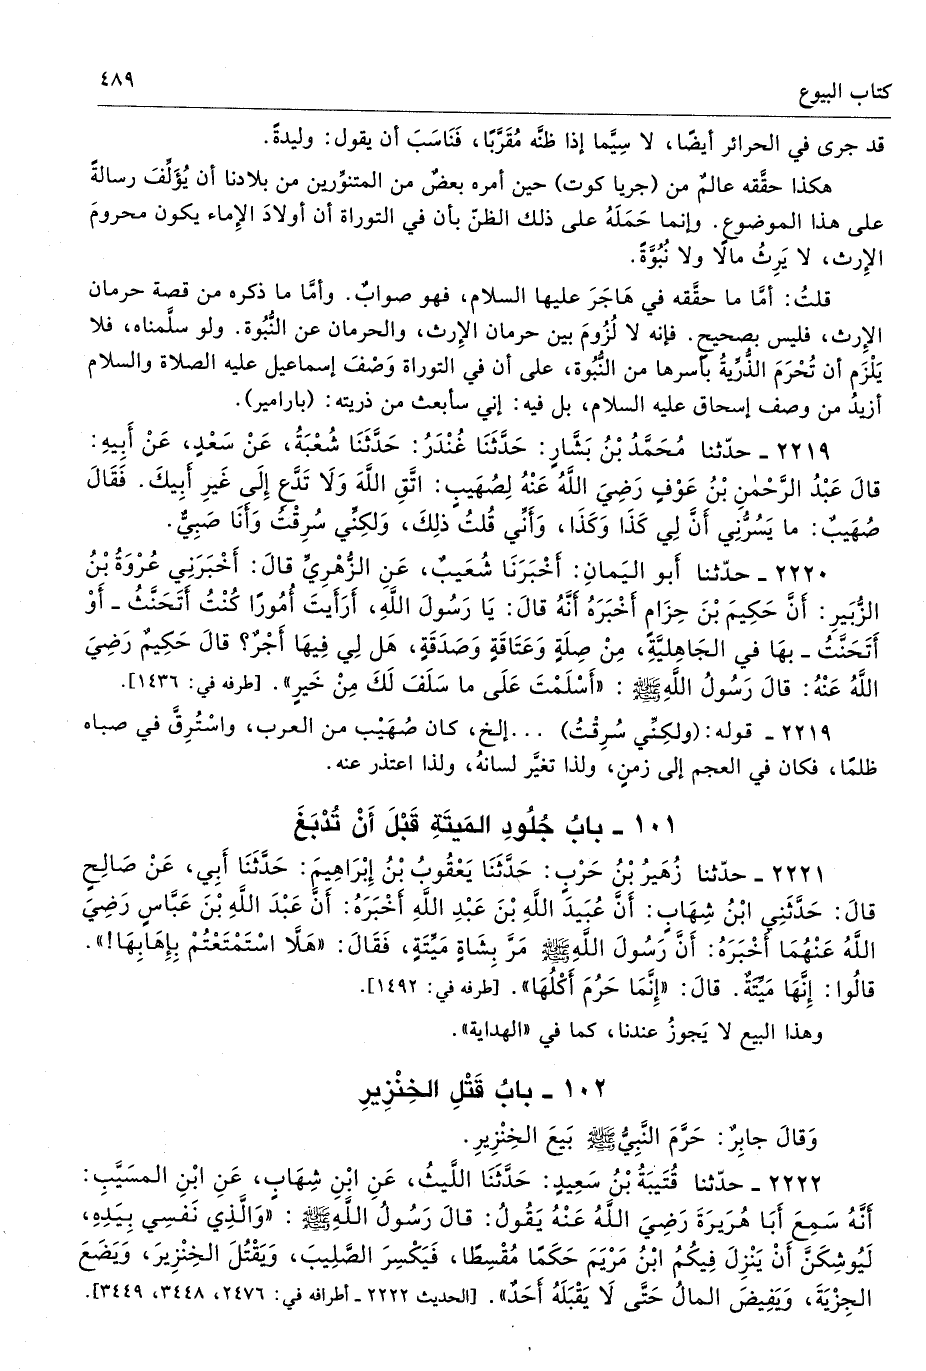 كتاب البيوع
٤٨٩
قد جرى في الحرائر أيضًا، لا سِيَّما إذا ظنَّه مُقَرَّبًا، فَنَاسَبَ أن يقول: وليدةً.
هكذا حقَّقه عالمٌ من (جريا كوت) حين أمره بعضٌ من المتنوِّرين من بلادنا أن يُؤَلِّفَ رسالةً
على هذا الموضوع. وإنما حَمَلَهُ على ذلك الظنّ بأن في التوراة أن أولادَ الإِماء يكون محرومَ
الإِرث، لا يَرِثُ مالًا ولا نُبُوَّةً.
قلتُ: أمَّا ما حقَّقه في هَاجَرَ عليها السلام، فهو صوابٌ. وأمَّا ما ذكره من قصة حرمان
الإِرث، فليس بصحيحٍ. فإنه لا لُزُومَ بين حرمان الإِرث، والحرمان عن النُّبُوة. ولو سلَّمناه، فلا
يَلْزَم أن تُحْرَمَ الذُّرِّيةُ بأسرها من النُّبُوة، على أن في التوراة وَصْفَ إسماعيل عليه الصلاة والسلام
أزيدُ من وصف إسحاق عليه السلام، بل فيه: إني سأبعث من ذريته: (بارامير).
٢٢١٩ ـ حدّثنا مُحَمَّدُ بْنُ بَشَّارٍ: حَدَّثَنَا غُنْدَرٌ: حَدَّثَنَا شُعْبَةُ، عَنْ سَعْدٍ، عَنْ أَبِيهِ:
قالَ عَبْدُ الرَّحْمٰنِ بْنُ عَوْفٍ رَضِيَ اللَّهُ عَنْهُ لِصُهَيبٍ: اتَّقِ اللَّهَ وَلَا تَدَّعِ إِلَى غَيرِ أَبِيكَ. فَقَالَ
صُهَيبٌ: ما يَسُرُّنِي أَنَّ لِي كَذَا وَكَذَا، وَأَنِّي قُلتُ ذلِكَ، وَلكِنِّي سُرِقْتُ وَأَنَا صَبِيٌّ.
٢٢٢٠ ـ حدّثنا أَبو اليَمانِ: أَخْبَرَنَا شُعَيبٌ، عَنِ الزُّهْرِيِّ قالَ: أَخْبَرَنِي عُرْوَةُ بْنُ
الزُّبَيرِ: أَنَّ حَكِيمَ بْنَ حِزَامٍ أَخْبَرَهُ أَنَّهُ قالَ: يَا رَسُولَ اللَّهِ، أَرَأَيتَ أُمُورًا كُنْتُ أَتَحَنَّثُ ـ أَوْ
أَتَحَنَّتُ ـ بهَا في الجَاهِليَّةِ، مِنْ صِلَةٍ وَعَتَاقَةٍ وَصَدَقَةٍ، هَل لِي فِيهَا أَجْرٌ؟ قالَ حَكِيمٌ رَضِيَ
اللَّهُ عَنْهُ: قالَ رَسُولُ اللَّهِ ﷺ: «أَسْلَمْتَ عَلَى ما سَلَفَ لَكَ مِنْ خَيرٍ». [طرفه في: ١٤٣٦].
٢٢١٩ ـ قوله: (ولكِنِّي سُرِقْتُ) ...إلخ، كان صُهَيْب من العرب، واسْتُرِقَّ في صباه
ظلمًا، فكان في العجم إلى زمنٍ، ولذا تغيَّر لسانهُ، ولذا اعتذر عنه.
١٠١ ـ بابُ جُلُودِ المَيتَةِ قَبْلَ أَنْ تُدْبَغَ
٢٢٢١ ـ حدّثنا زُهَيرُ بْنُ حَرْبٍ: حَدَّثَنَا يَعْقُوبُ بْنُ إِبْرَاهِيمَ: حَدَّثَنَا أَبِي، عَنْ صَالِحٍ
قالَ: حَدَّثَنِي ابْنُ شِهَابٍ: أَنَّ عُبَيدَ اللَّهِ بْنَ عَبْدِ اللَّهِ أَخْبَرَهُ: أَنَّ عَبْدَ اللَّهِ بْنَ عَبَّاسٍ رَضِيَ
اللَّهُ عَنْهُمَا أَخْبَرَهُ: أَنَّ رَسُولَ اللَّهِ ﷺ مَرَّ بِشَاةٍ مَيِّتَةٍ، فَقَالَ: «هَلَّا اسْتَمْتَعْتُمْ بِإِهَابِهَا!».
قالُوا: إِنَّهَا مَيِّتَةٌ. قالَ: «إِنَّمَا حَرُمَ أَكْلُهَا». [طرفه في: ١٤٩٢].
وهذا البيع لا يَجوزُ عندنا، كما في «الهداية».
١٠٢ ـ بابُ قَتْلِ الخِنْزِيرِ
وَقالَ جابِرٌ: حَرَّمَ النَّبِيُّ ﷺ بَيعَ الخِنْزِيرِ.
٢٢٢٢ ـ حدّثنا قُتَيبَةُ بْنُ سَعِيدٍ: حَدَّثَنَا اللَّيثُ، عَنِ ابْنِ شِهَابٍ، عَنِ ابْنِ المسَيَّبِ:
أَنَّهُ سَمِعَ أَبَا هُرَيرَةَ رَضِيَ اللَّهُ عَنْهُ يَقُولُ: قالَ رَسُولُ اللَّهِ ﷺ: «وَالَّذِي نَفْسِي بِيَدِهِ،
لَيُوشِكَنَّ أَنْ يَنْزِلَ فِيكُمُ ابْنُ مَرْيَمَ حَكَمًا مُقْسِطًا، فَيَكْسِرَ الصَّلِيبَ، وَيَقْتُلَ الخِنْزِيرَ، وَيَضَعَ
الجِزْيَةَ، وَيَفِيضَ المالُ حَتَّى لَا يَقْبَلَهُ أَحَدٌ». [الحديث ٢٢٢٢ ـ أطرافه في: ٢٤٧٦، ٣٤٤٨، ٣٤٤٩].